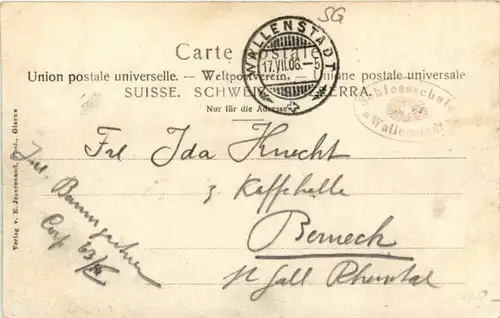 SG
WALLENSTADT
17.VII.06.-5
Carte postale
Union postale universelle. — Weltpostverein. — Unione postale universale
SUISSE. SCHWEIZ. SVIZZERA.
Nur für die Adresse.
Schiessschule
Wallenstadt
Frl Ida Knecht
z Kaffehalle
Berneck
St Gall Rheintal
Baumgartner
Corp 63/IV
Verlag v. E. Jeanrenaud, Phot., Glarus